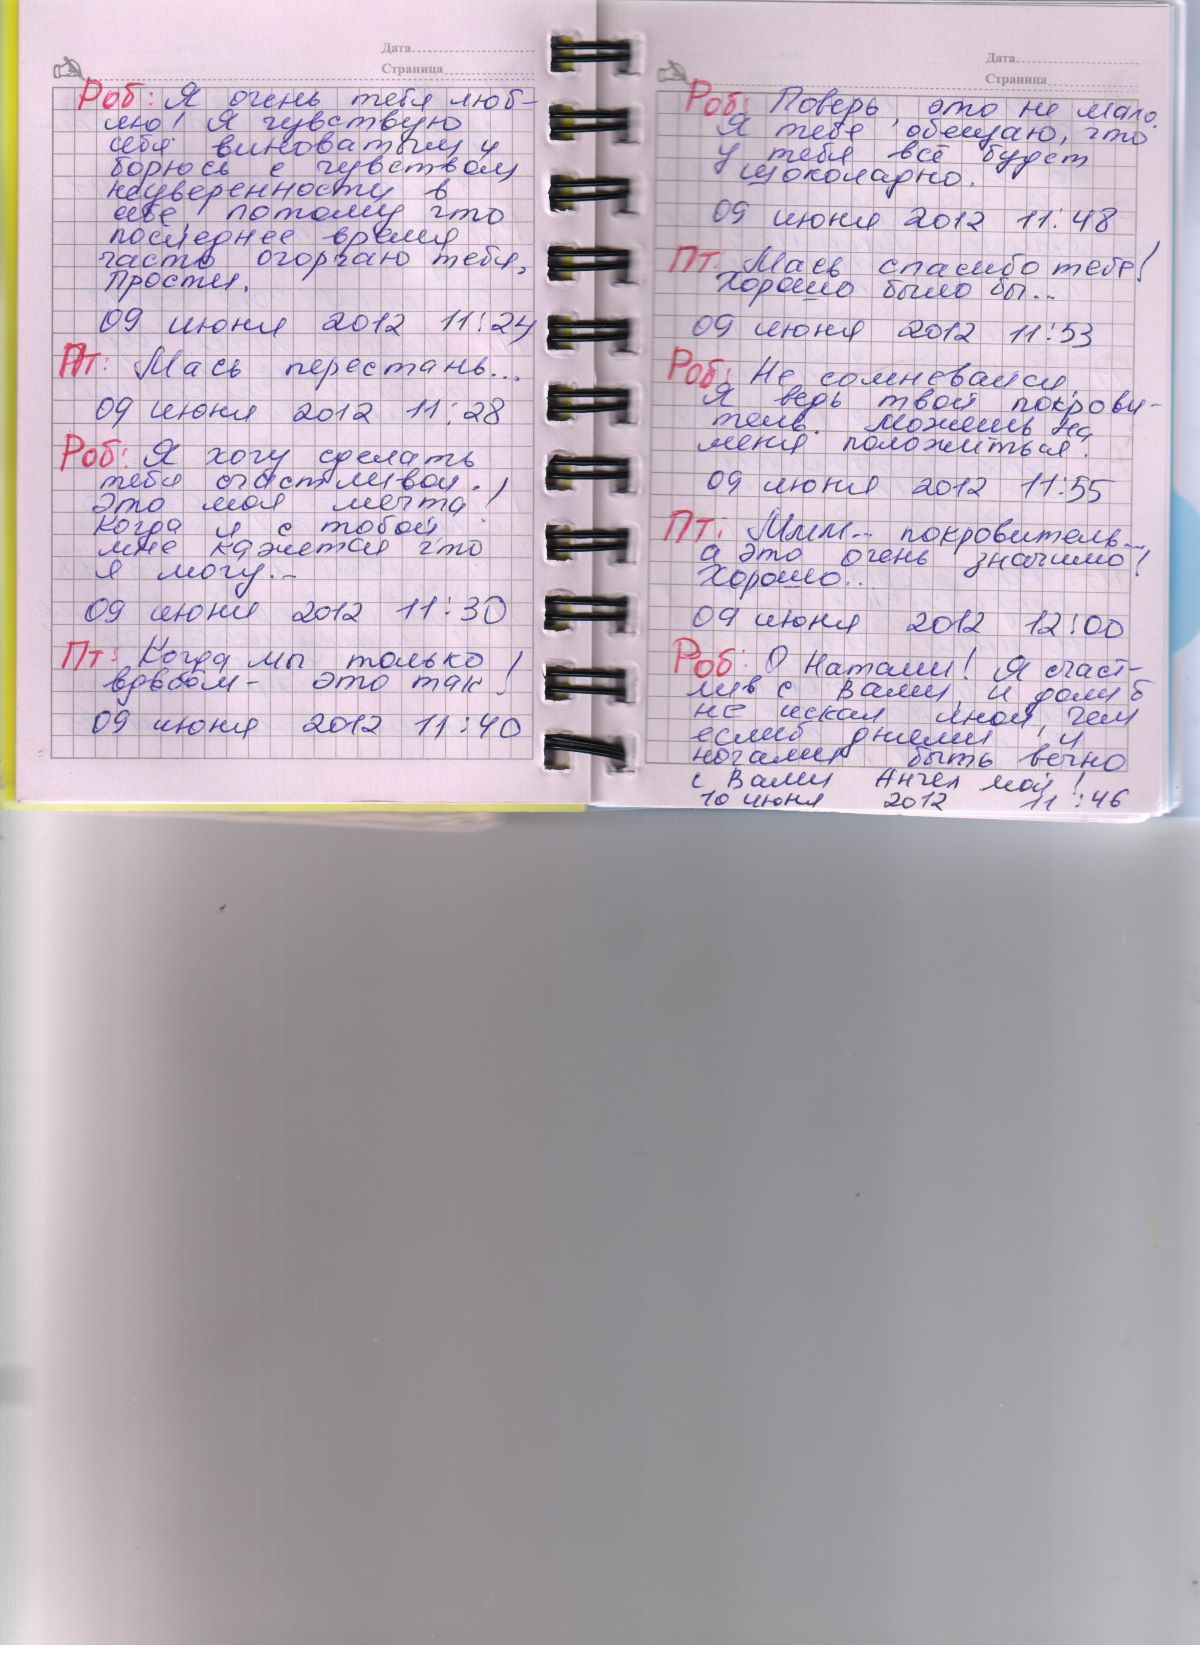 Дата
Страница
Роб: Я очень тебя люб-
лю! Я чувствую
себя виноватым и
борюсь с чувством
неуверенности в
себе, потому что
последнее время
часто огорчаю тебя.
Прости.
09 июня 2012 11:24
Пт: Мась перестань...
09 июня 2012 11:28
Роб: Я хочу сделать
тебя счастливой.
Это моя мечта!
Когда я с тобой,
мне кажется что
я могу..
09 июня 2012 11:30
Пт: Когда мы только
вдвоём - это так!
09 июня 2012 11:40
Дата
Страница
Роб: Поверь, это не мало.
Я тебе обещаю, что
у тебя всё будет
шоколадно.
09 июня 2012 11:48
Пт: Мась спасибо тебе!
Хорошо было бы...
09 июня 2012 11:53
Роб: Не сомневайся.
Я ведь твой покрови-
тель. Можешь на
меня положиться.
09 июня 2012 11:55
Пт: Ммм... покровитель...
а это очень значимо!
Хорошо...
09 июня 2012 12:00
Роб: О Натали! Я счаст-
лив с Вами, и доли б
не искал иной, чем
еслиб днями, и
ночами быть вечно
с Вами Ангел мой!
10 июня 2012 11:46